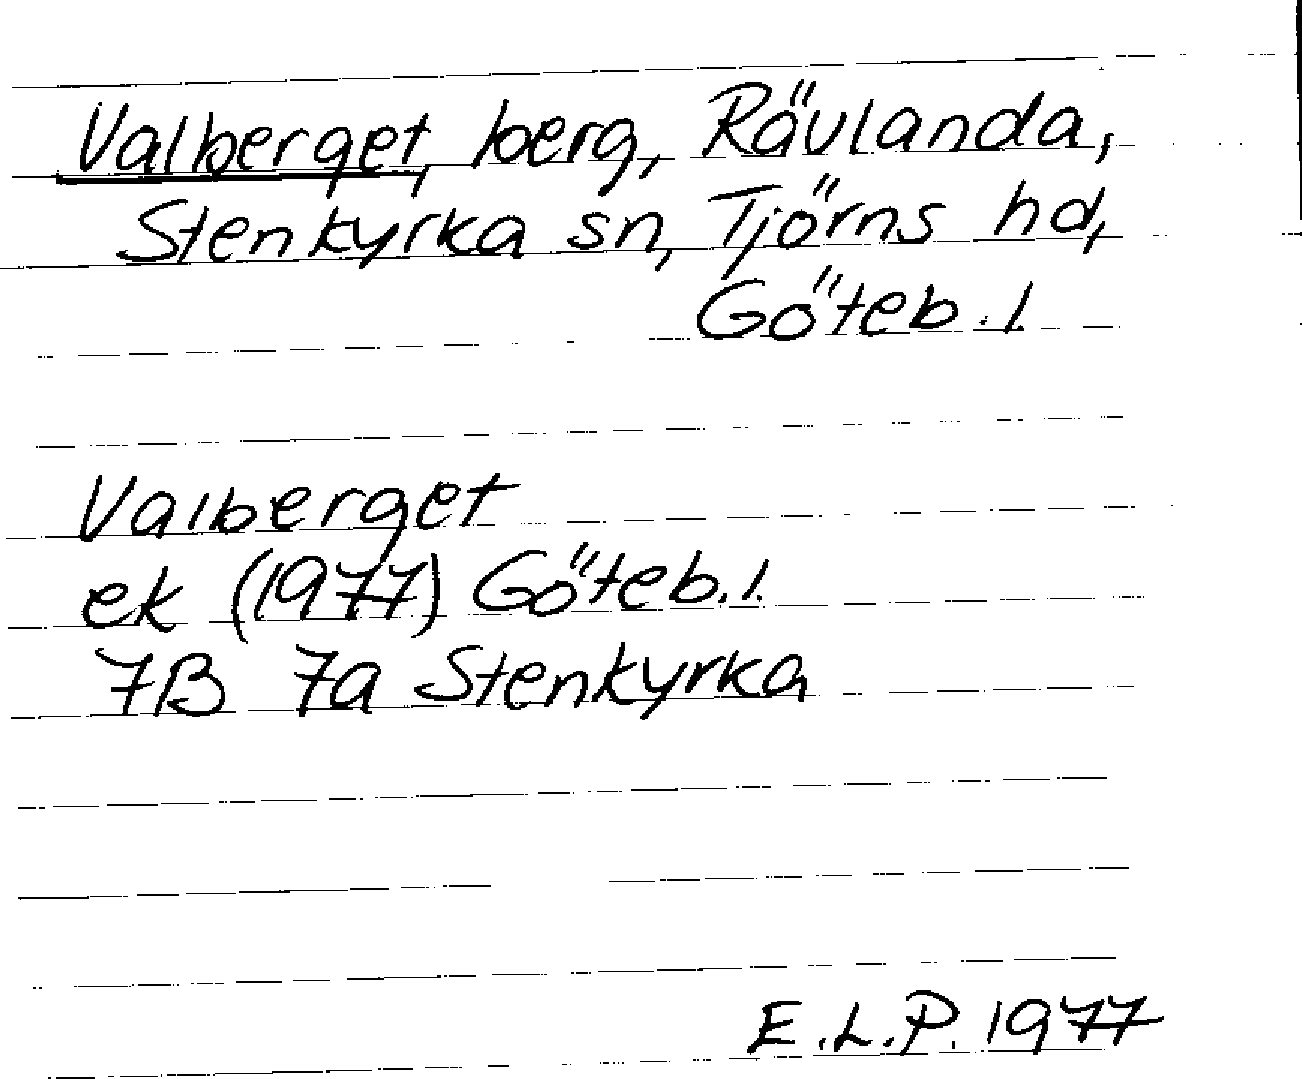 Valberget, berg, Rävlanda,
Stenkyrka sn, Tjörns hd,
Göteb. l.
Valberget
ek (1977) Göteb. l.
7B 7a Stenkyrka
E.L.P. 1977